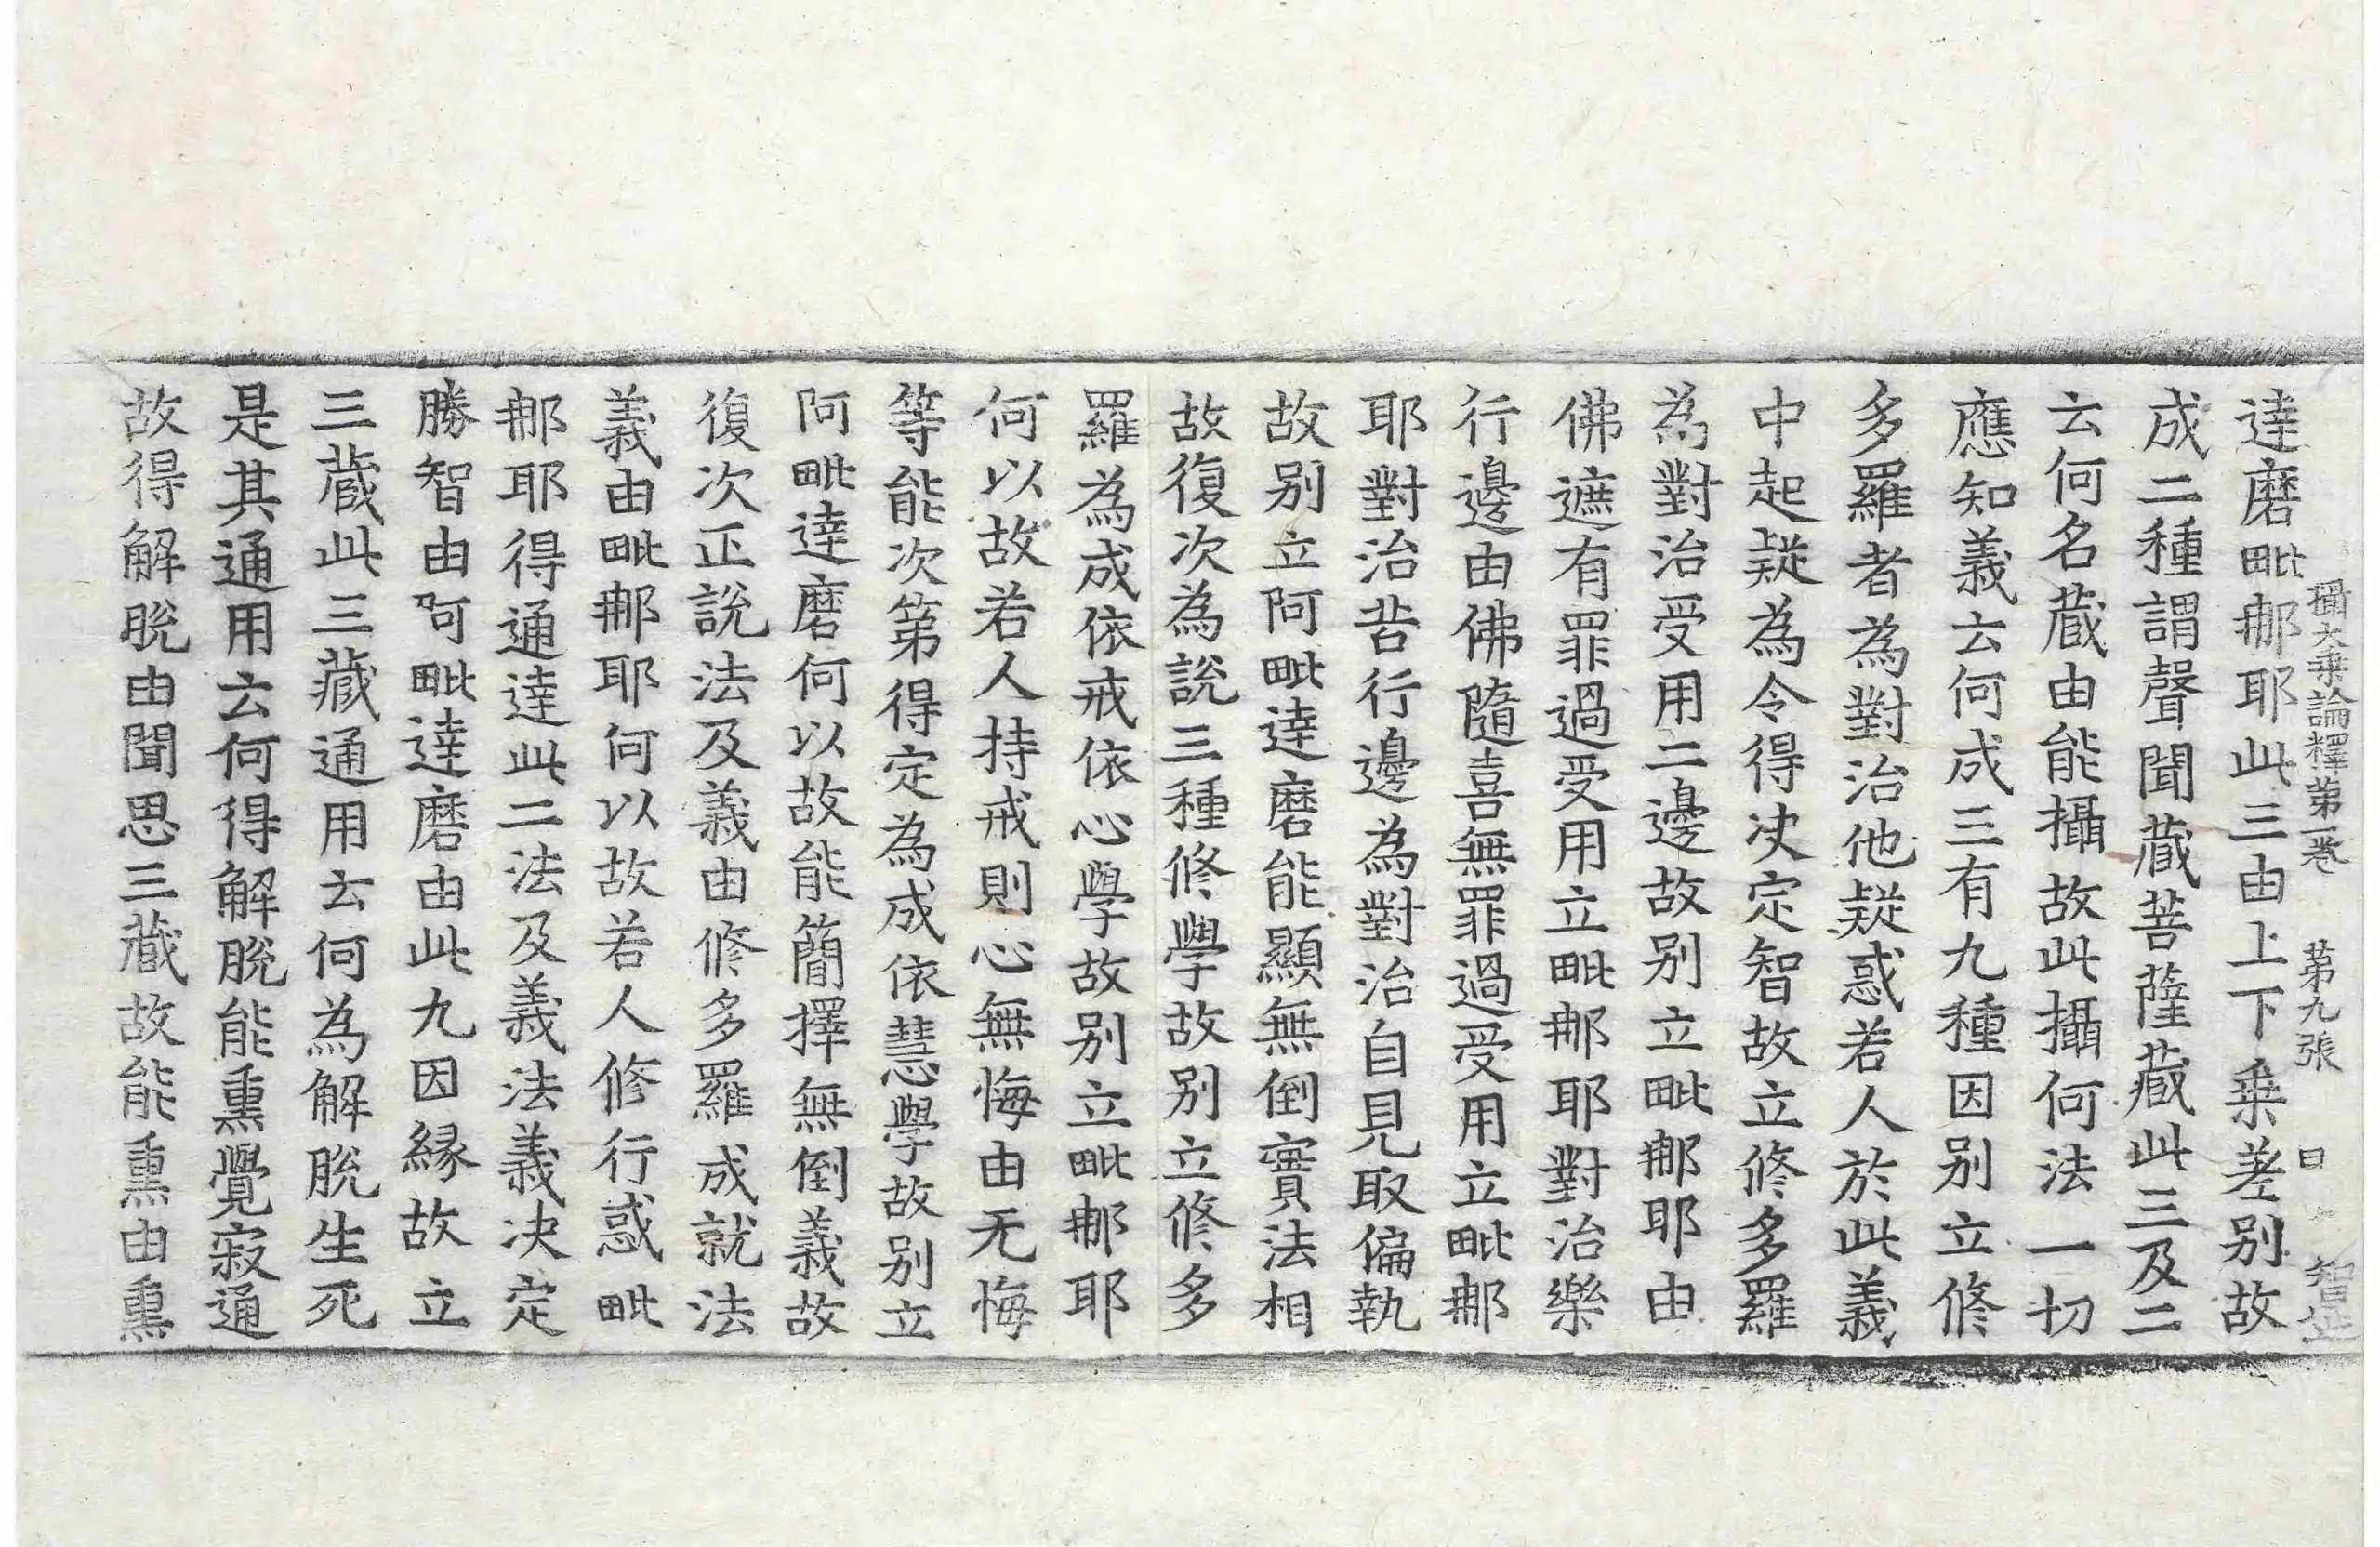 攝大乗論釋第一卷 第九張 曰
達磨毗那耶此三由上下乗差别故
成二種謂聲聞藏菩薩藏此三及二
云何名藏由能攝故此攝何法一切
應知義云何成三有九種因别立修
多羅者為對治他疑惑若人於此義
中起疑為令得决定智故立修多羅
為對治受用二邊故别立毗那耶由
佛遮有罪過受用立毗那耶對治樂
行邊由佛隨喜無罪過受用立毗那
耶對治苦行邊為對治自見取偏執
故别立阿毗達磨能顯無倒實法相
故復次為說三種修學故别立修多
羅為成依戒依心學故别立毗那耶
何以故若人持戒則心無悔由无悔
等能次第得定為成依慧學故别立
阿毗達磨何以故能簡擇無倒義故
復次正說法及義由修多羅成就法
義由毗那耶何以故若人修行惑毗
那耶得通達此二法及義法義决定
勝智由阿毗達磨由此九因緣故立
三藏此三藏通用云何為解脫生死
是其通用云何得解脫能熏覺寂通
故得解脫由聞思三藏故能熏由熏